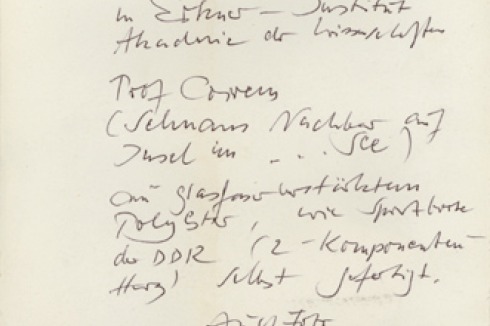 in Erkner – Institut
Akademie der Wissenschaften
Prof Correns
(Selmans Nachbar auf
Insel im . . . See)
aus glasfaserverstärktem
Polyester, wie Sportboote
der DDR (2-Komponenten-
Harz) selbst gefertigt.